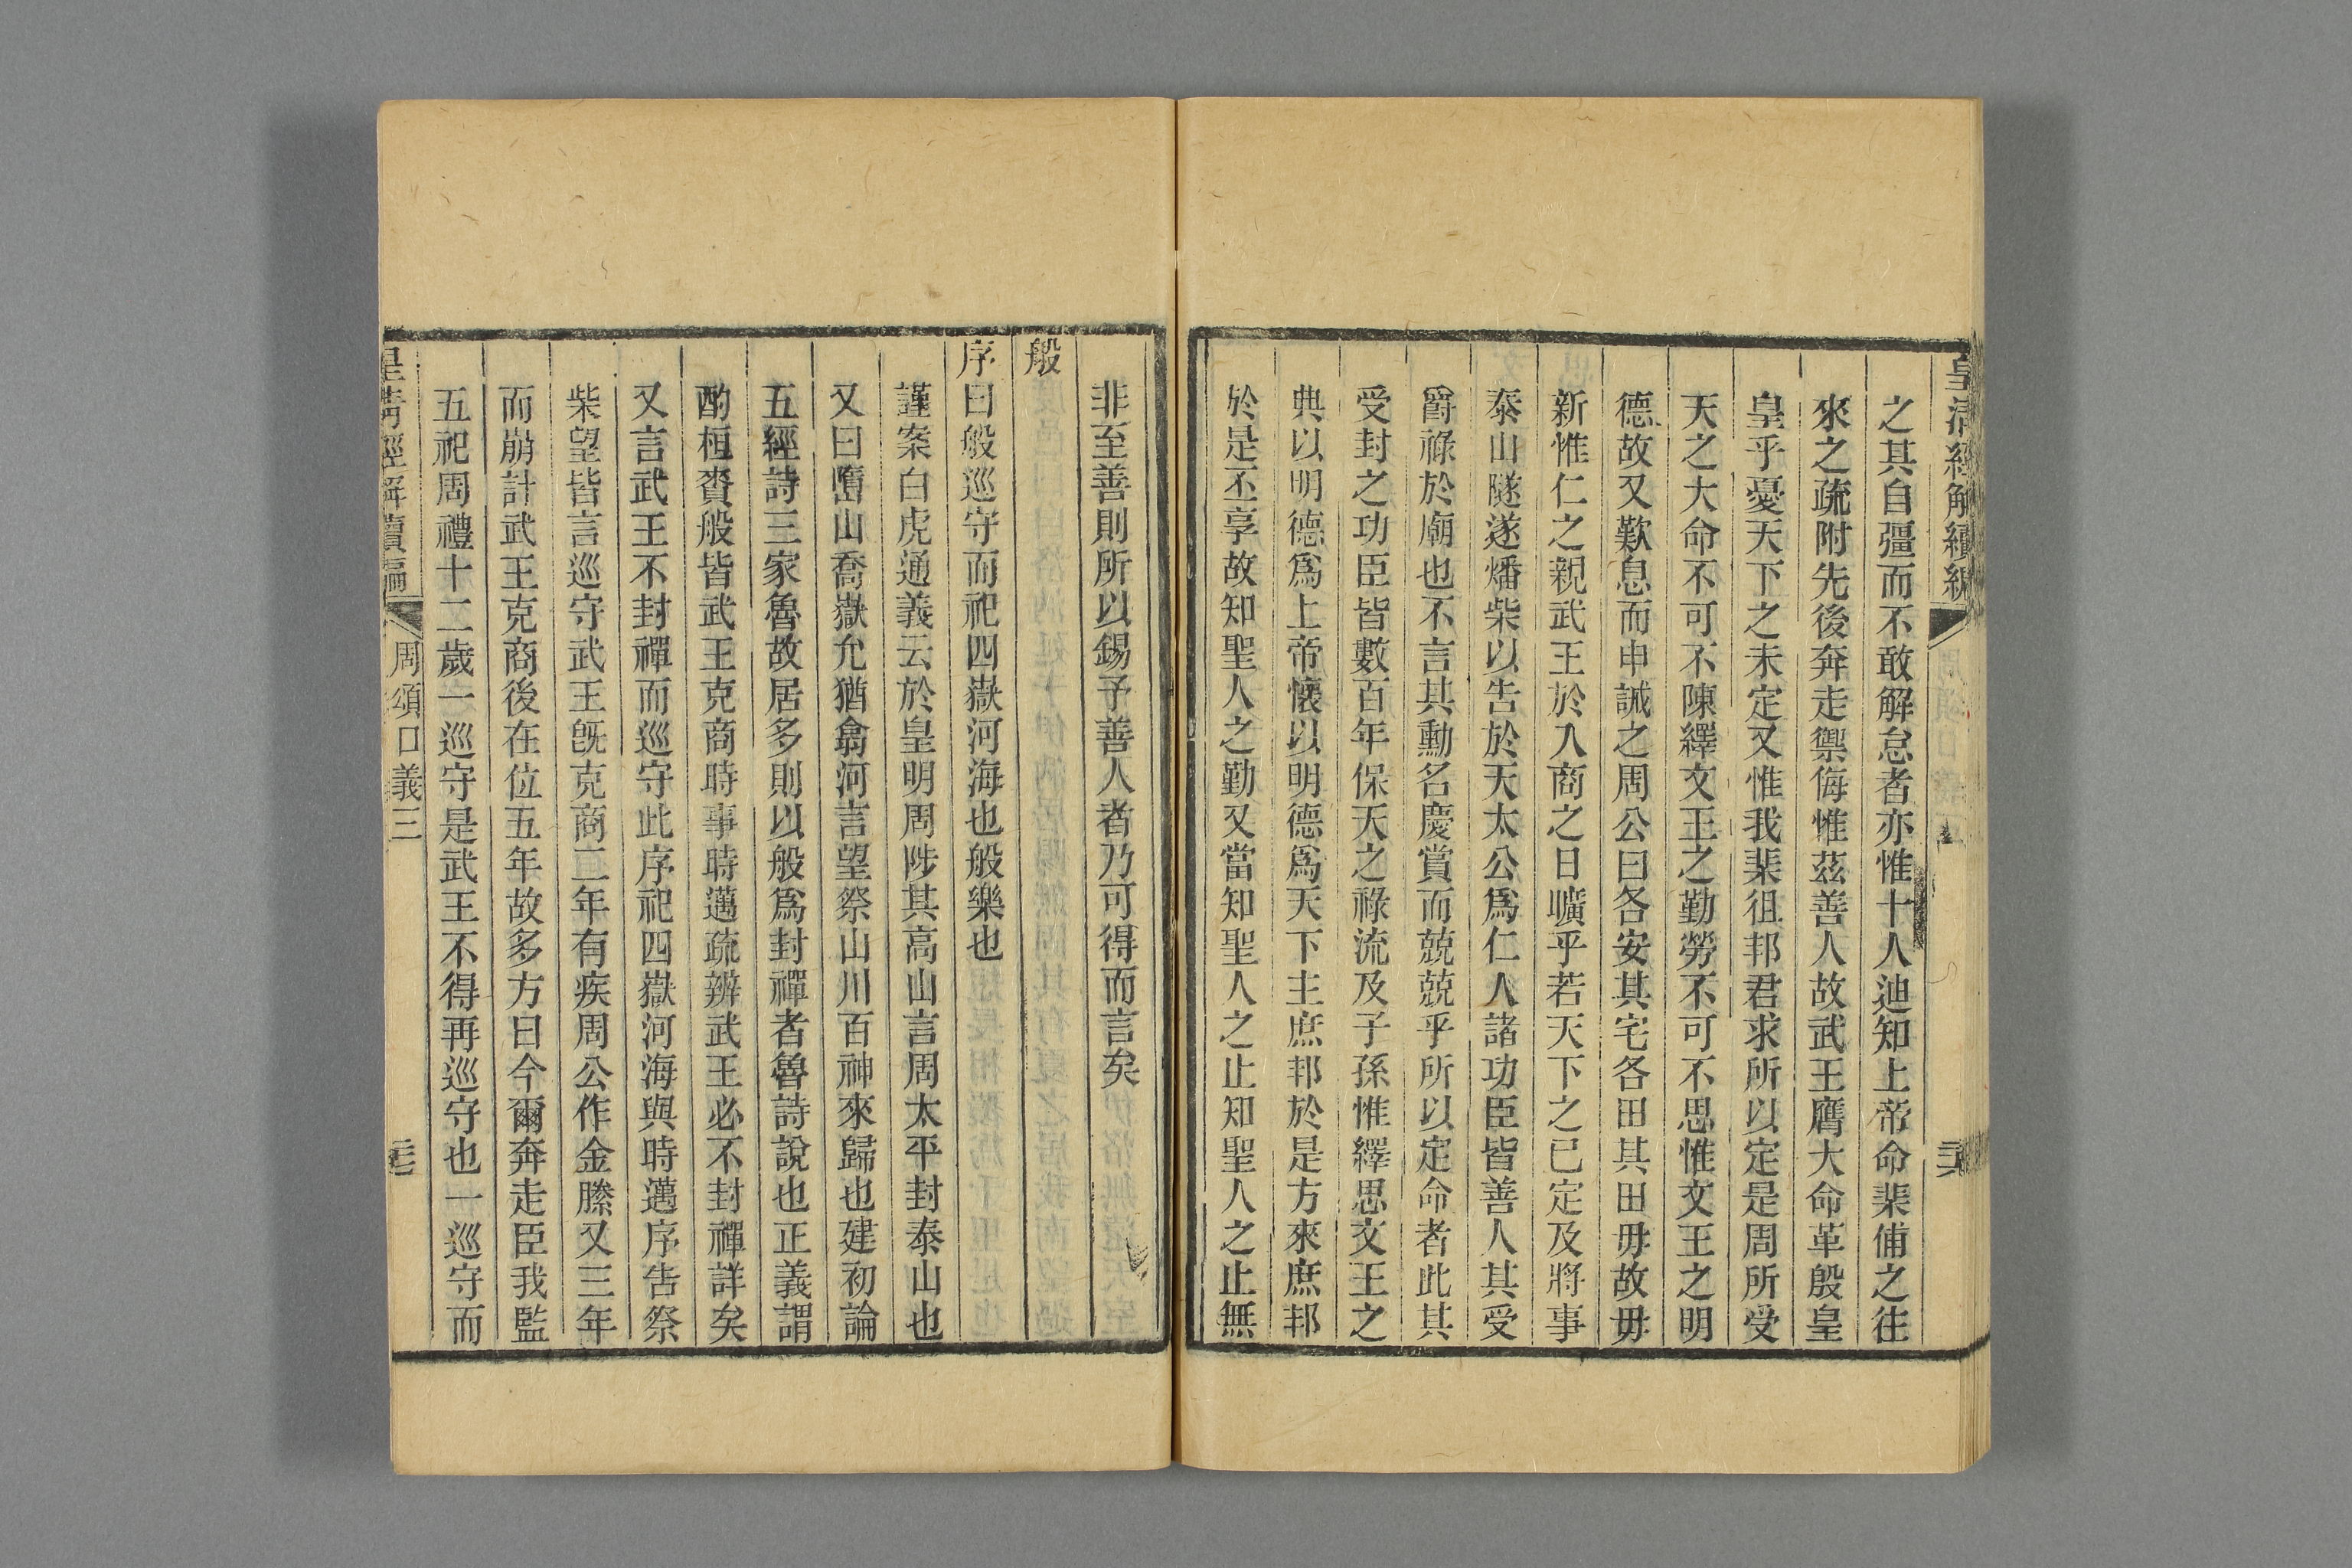 皇清經解續編
之其自彊而不敢解怠者亦惟十人迪知上帝命棐俌之往
來之疏附先後奔走禦侮惟茲善人故武王膺大命革殷皇
皇乎憂天下之未定又惟我棐徂邦君求所以定是周所受
天之大命不可不陳繹文王之勤勞不可不思惟文王之明
德故又歎息而申誡之周公曰各安其宅各田其田毋故毋
新惟仁之親武王於入商之日曠乎若天下之已定及將事
泰山隧遂燔柴以告於天太公爲仁人諸功臣皆善人其受
爵祿於廟也不言其勳名慶賞而兢兢乎所以定命者此其
受封之功臣皆數百年保天之祿流及子孫惟繹思文王之
典以明德爲上帝懷以明德爲天下主庶邦於是方來庶邦
於是丕享故知聖人之勤又當知聖人之止知聖人之止無
非至善則所以錫予善人者乃可得而言矣
般
序曰般巡守而祀四嶽河海也般樂也
謹案白虎通義云於皇明周陟其高山言周太平封泰山也
又曰嶞山喬嶽允猶翕河言望祭山川百神來歸也建初論
五經詩三家魯故居多則以般爲封禪者魯詩說也正義謂
酌桓賚般皆武王克商時事時邁疏辨武王必不封禪詳矣
又言武王不封禪而巡守此序祀四嶽河海與時邁序告祭
柴望皆言巡守武王旣克商二年有疾周公作金縢又三年
而崩計武王克商後在位五年故多方曰今爾奔走臣我監
五祀周禮十二歲一巡守是武王不得再巡守也一巡守而
皇清經解續編 周頌口義三